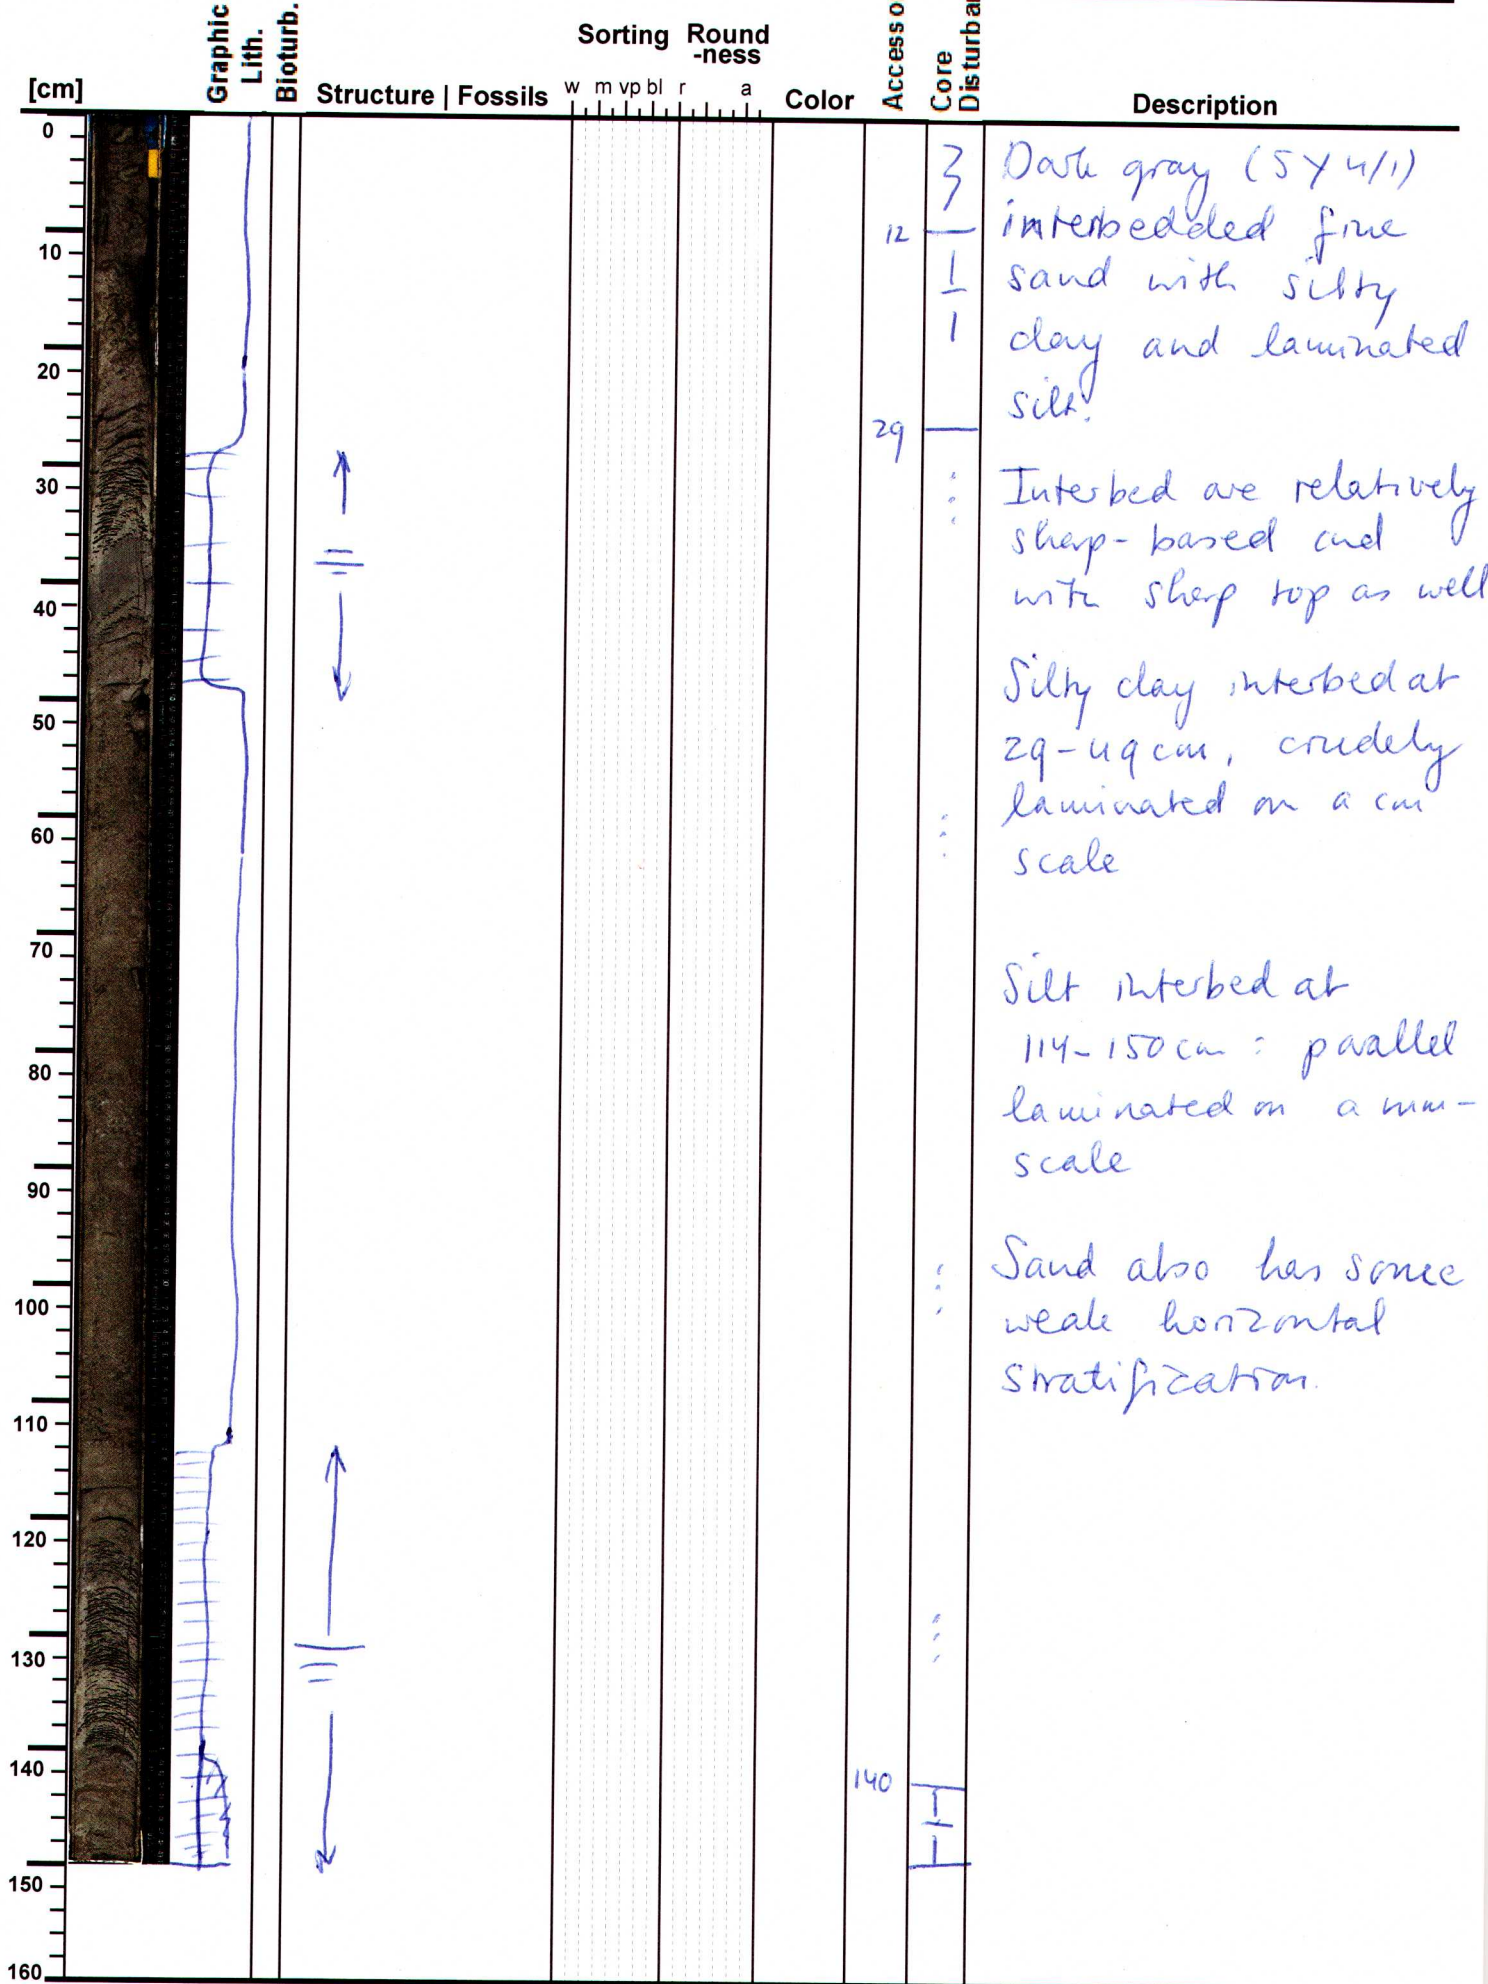 [cm]
Graphic
Lith.
Bioturb.
Structure | Fossils
Sorting
w m vp bl
Round
-ness
r a
Color
Accesso
Core
Disturba
Description
0
10
20
30
40
50
60
70
80
90
100
110
120
130
140
150
160
12
29
140
Dark gray (5Y 4/1)
interbedded fine
sand with silty
clay and laminated
silt.
Interbed are relatively
sharp-based and
with sharp top as well
Silty clay interbed at
29-49 cm, crudely
laminated on a cm
scale
Silt interbed at
114-150 cm : parallel
laminated on a mm-
scale
Sand also has some
weak horizontal
stratification.